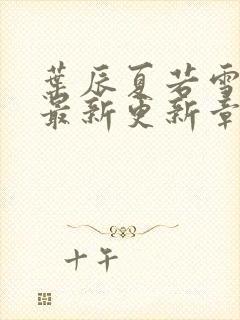 葉辰夏若雪
最新更新章
十午